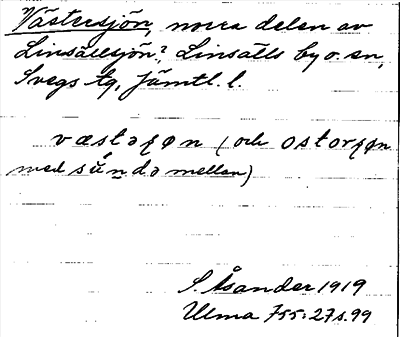 Västersjön, norra delen av
Linsällsjön?, Linsälls by o. sn,
Svegs tg, Jämtl. l.
væstəʃøn (och ostorʃøn
med súndə mellan)
S. Åsander 1919
Ulma 755:27 s. 99